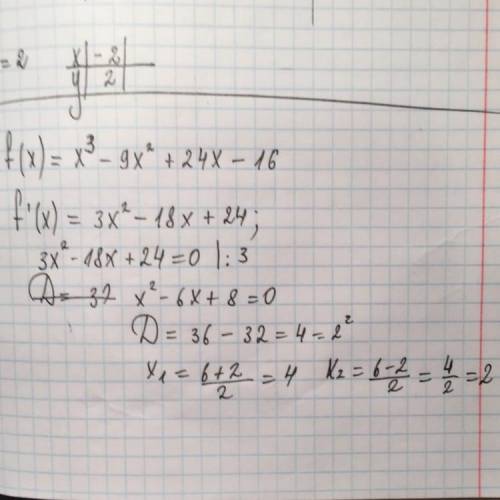 =2 x | -2 |
y | 2 |
f(x) = x³ - 9x² + 24x - 16
f'(x) = 3x² - 18x + 24;
3x² - 18x + 24 = 0 |: 3
D = 32 x² - 6x + 8 = 0
D = 36 - 32 = 4 = 2²
x₁ = (6+2)/2 = 4 x₂ = (6-2)/2 = 4/2 = 2